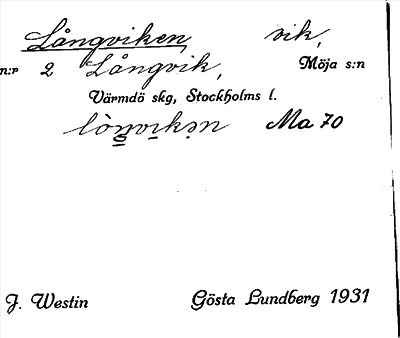 Långviken, vik,
n:r 2 Långvik, Möja s:n
Värmdö skg, Stockholms l.
Ma 70
J. Westin Gösta Lundberg 1931